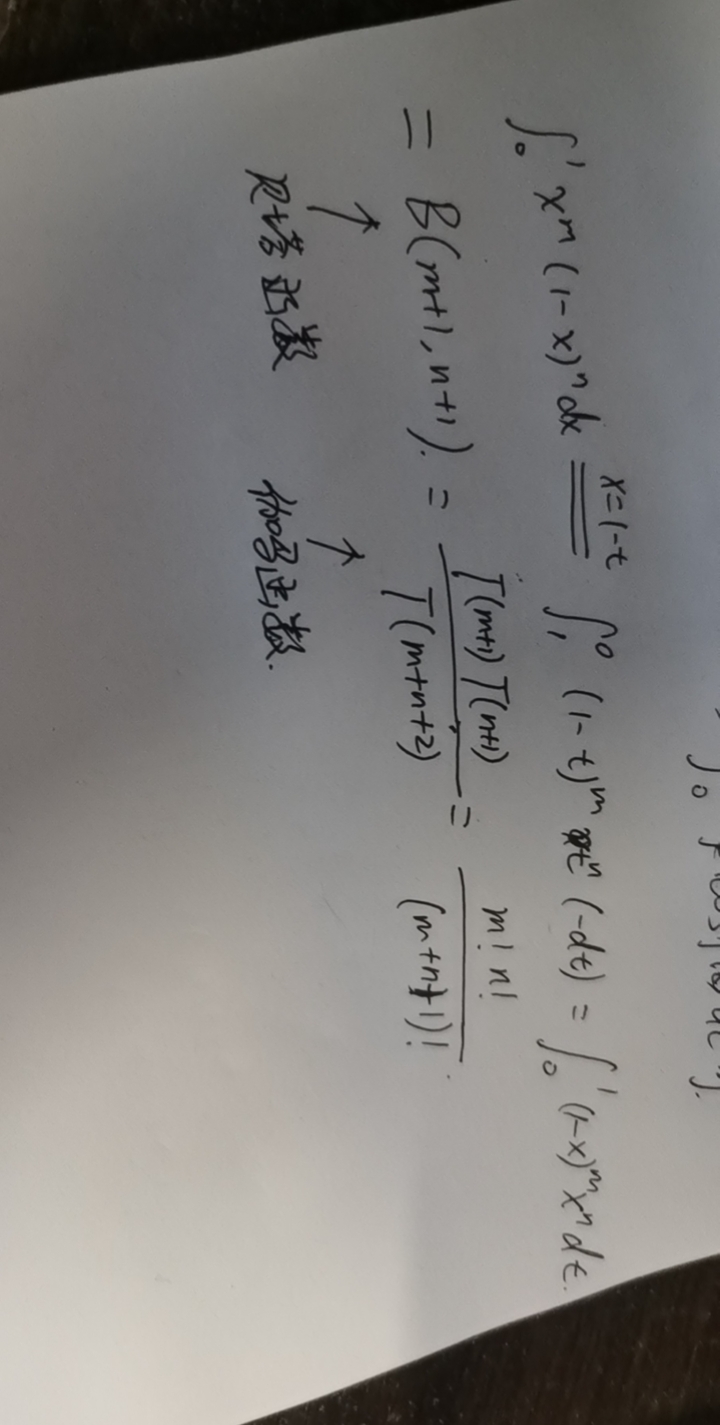 ∫₀¹ xᵐ(1-x)ⁿdx x=1-t ∫₁⁰ (1-t)ᵐ tⁿ (-dt) = ∫₀¹ (1-x)ᵐxⁿdt.
= B(m+1, n+1). = Γ(m+1)Γ(n+1) / Γ(m+n+2) = m! n! / (m+n+1)!
↑ ↑
贝塔函数 伽马函数.